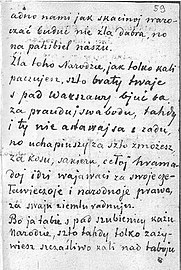 59
adno nami jak skacinoj waro-
czać budut nie dla dobra, no
na pahibel naszu.
Dla toho Narodzie, jak tolko kali
paczujesz, szto braty twaje
s pad Warszawy bjuć sia
za praudu i swabodu, tahdy
i ty nie astawajsia z zadu,
no uchapiuszy za szto zmożesz
za kosu, sakieru, cełoj hrama-
doj idzi wajawaci za swoje
i narodnoje prawo,
za swaju ziemlu radnuju.
Bo ja tabie s pad szubienicy każu
Narodzie, szto tahdy tolko zaży-
wiesz szczasliwo kali nad taboju